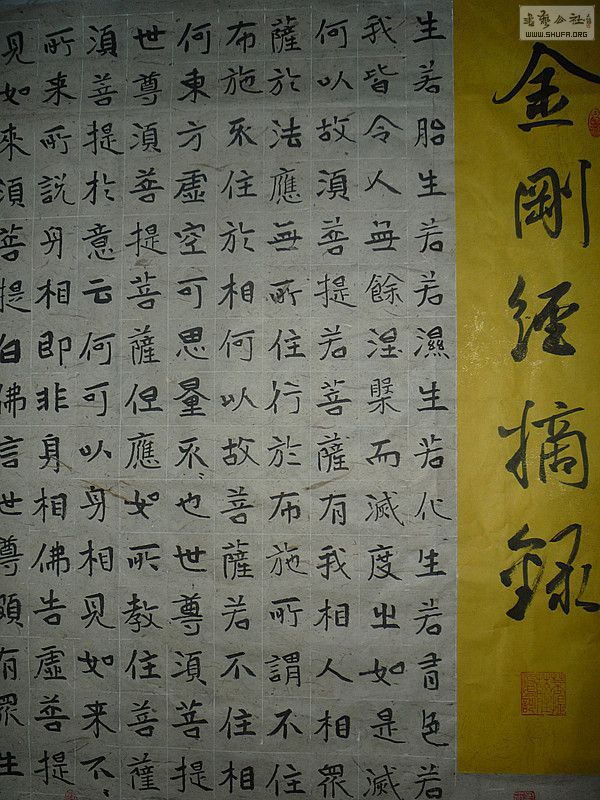 书艺公社
WWW.SHUFA.ORG
金剛經摘錄
生若胎生若若濕生若化生若有色若
我皆令人無餘涅槃而滅度之如是滅
何以故須菩提若菩薩有我相人相眾
薩於法應無所住行於布施所謂不住
布施不住於相何以故菩薩若不住相
何東方虛空可思量不也世尊須菩提
世尊須菩提菩薩但應如所教住菩薩
須菩提於意云何可以身相見如来不
所来所説身相即非身相佛告虛菩提
見如来須菩提白佛言世尊頗有眾生